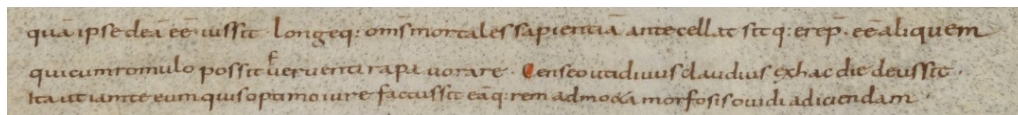 quā ipse deā eē iussit · longeq: oms̄ mortales sapientiā antecellat sitq: erep̄ · eē aliquem
quicum romulo possit ferventi rapa vorare · Censeo uti divus claudius exhac die deus sit ·
Ita uti ante eum quis optimo iure factus sit eāq: rem ad moxa morfosis ovidi adiciendam